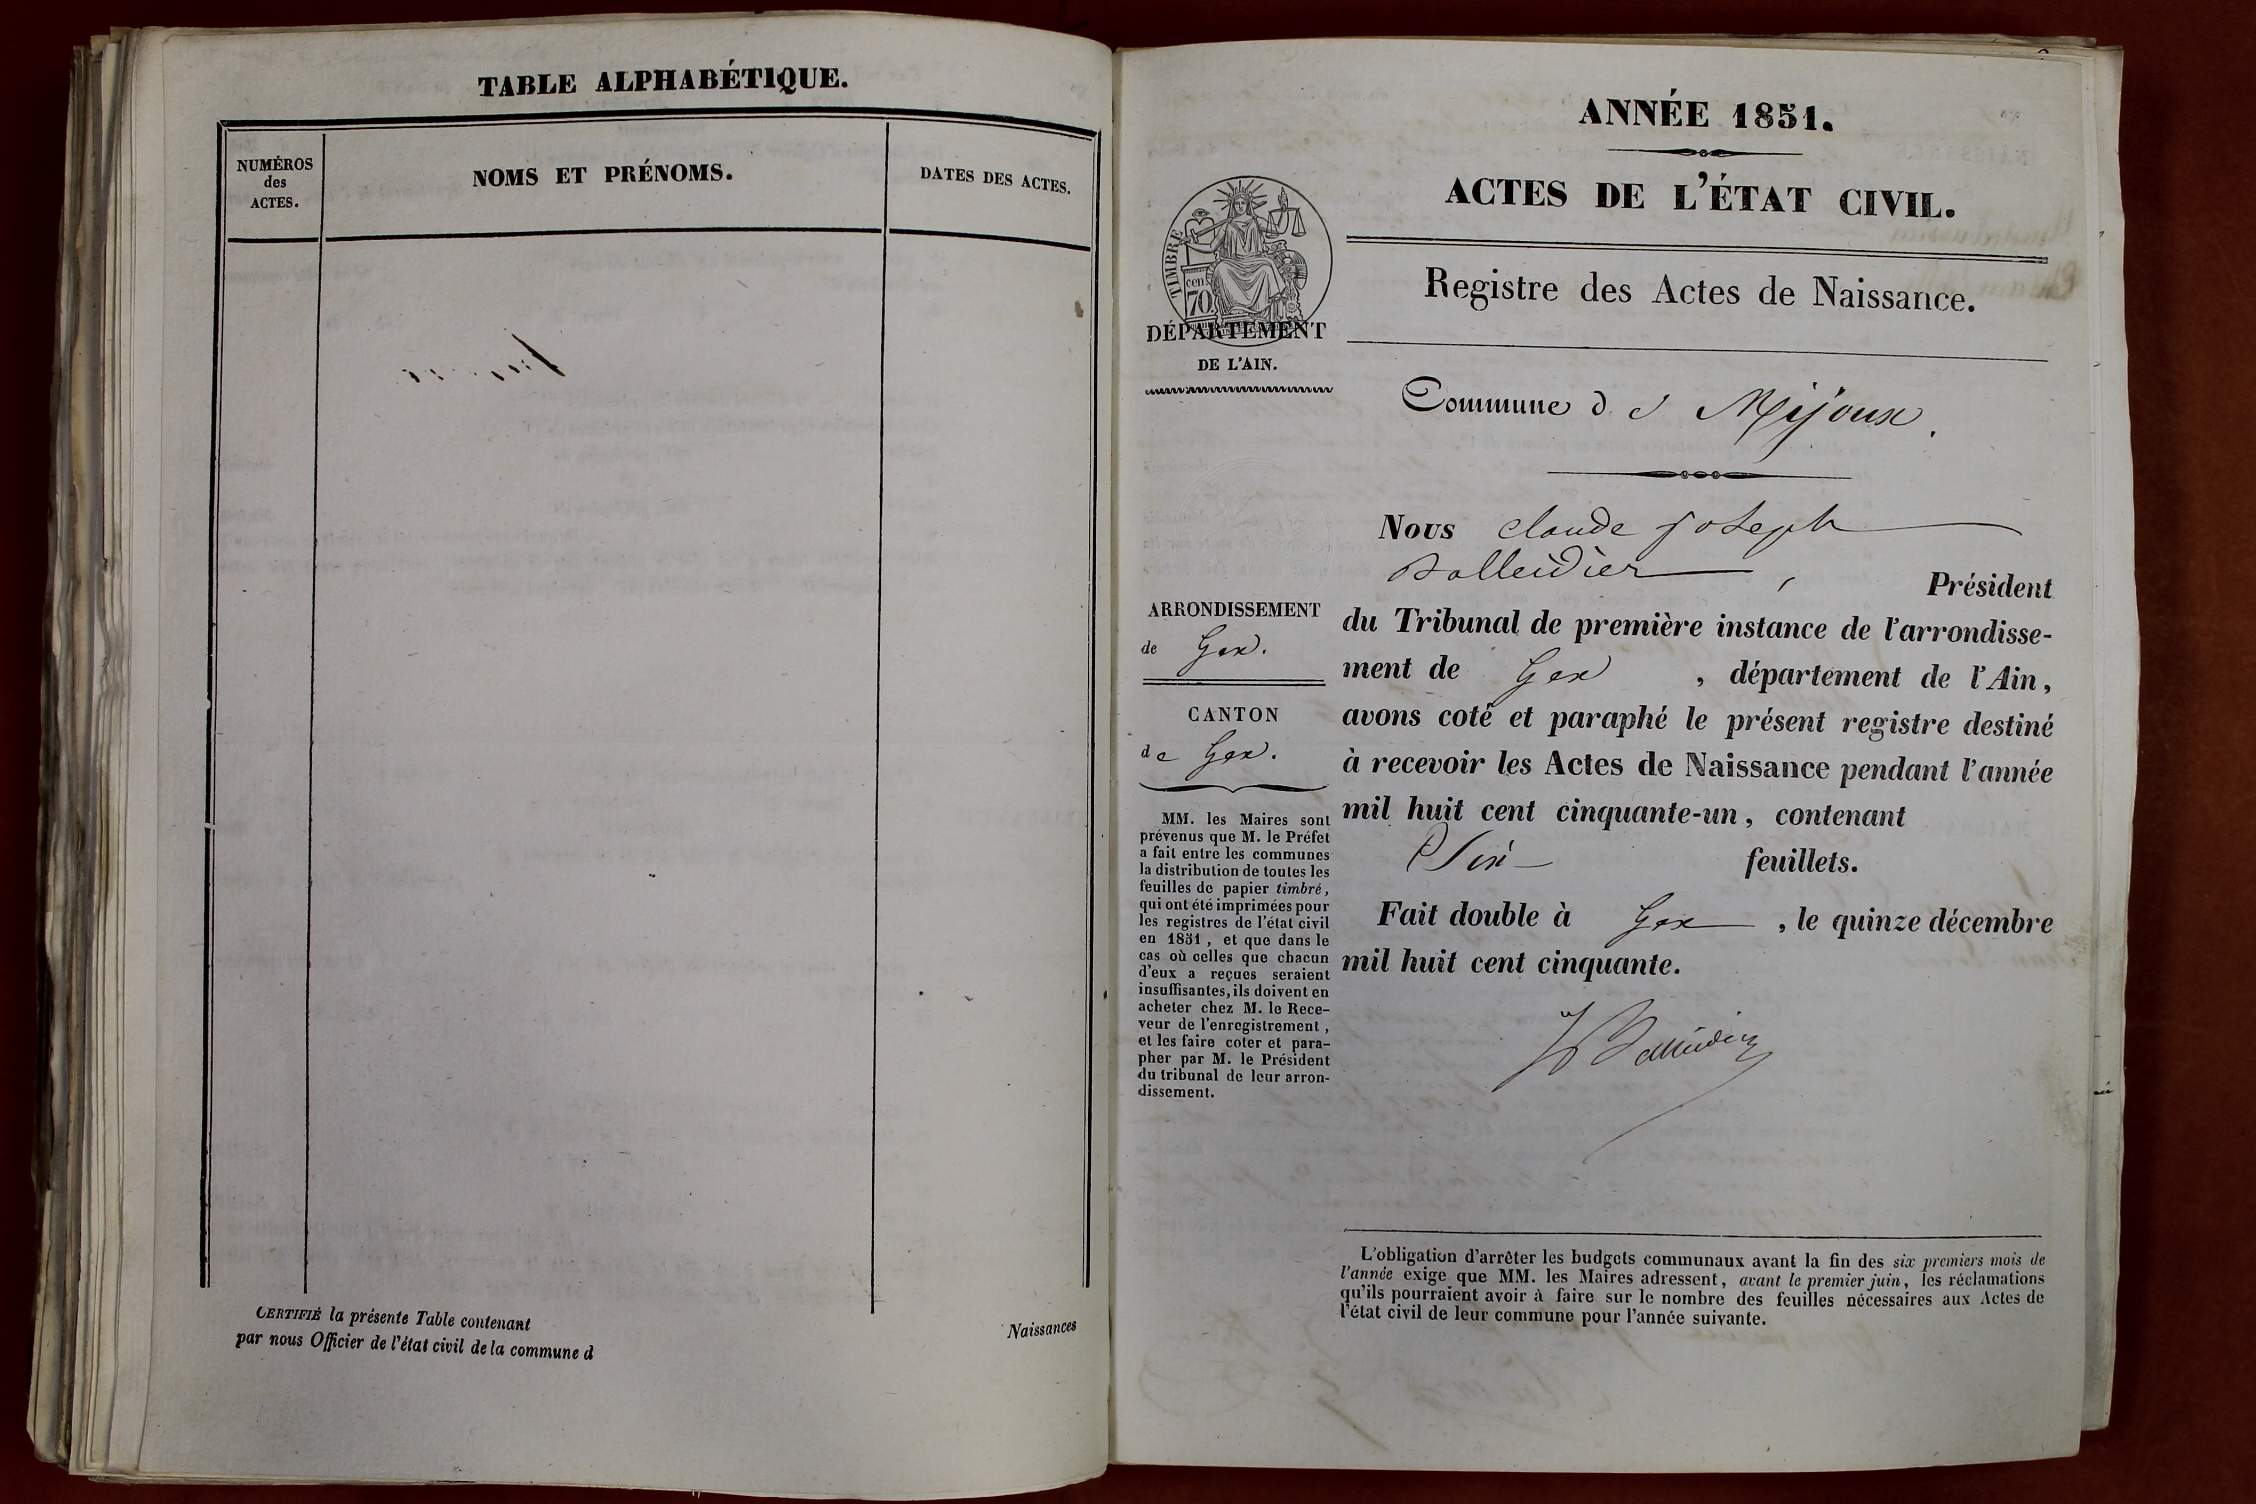 TABLE ALPHABÉTIQUE.
NUMÉROS
des
ACTES.
NOMS ET PRÉNOMS.
DATES DES ACTES.
CERTIFIÉ la présente Table contenant
Naissances
par nous Officier de l'état civil de la commune d
ANNÉE 1851.
ACTES DE L'ÉTAT CIVIL.
Registre des Actes de Naissance.
TIMBRE
cen.
70
DÉPARTEMENT
DE L'AIN.
ARRONDISSEMENT
de Gex.
CANTON
de Gex.
MM. les Maires sont
prévenus que M. le Préfet
a fait entre les communes
la distribution de toutes les
feuilles de papier timbré,
qui ont été imprimées pour
les registres de l'état civil
en 1851, et que dans le
cas où celles que chacun
d'eux a reçues seraient
insuffisantes, ils doivent en
acheter chez M. le Rece-
veur de l'enregistrement,
et les faire coter et para-
pher par M. le Président
du tribunal de leur arron-
dissement.
Commune de Mijoux.
Nous Claude Joseph
Balleidier, Président
du Tribunal de première instance de l'arrondisse-
ment de Gex, département de l'Ain,
avons coté et paraphé le présent registre destiné
à recevoir les Actes de Naissance pendant l'année
mil huit cent cinquante-un, contenant
Six feuillets.
Fait double à Gex, le quinze décembre
mil huit cent cinquante.
Balleidier
L'obligation d'arrêter les budgets communaux avant la fin des six premiers mois de
l'année exige que MM. les Maires adressent, avant le premier juin, les réclamations
qu'ils pourraient avoir à faire sur le nombre des feuilles nécessaires aux Actes de
l'état civil de leur commune pour l'année suivante.